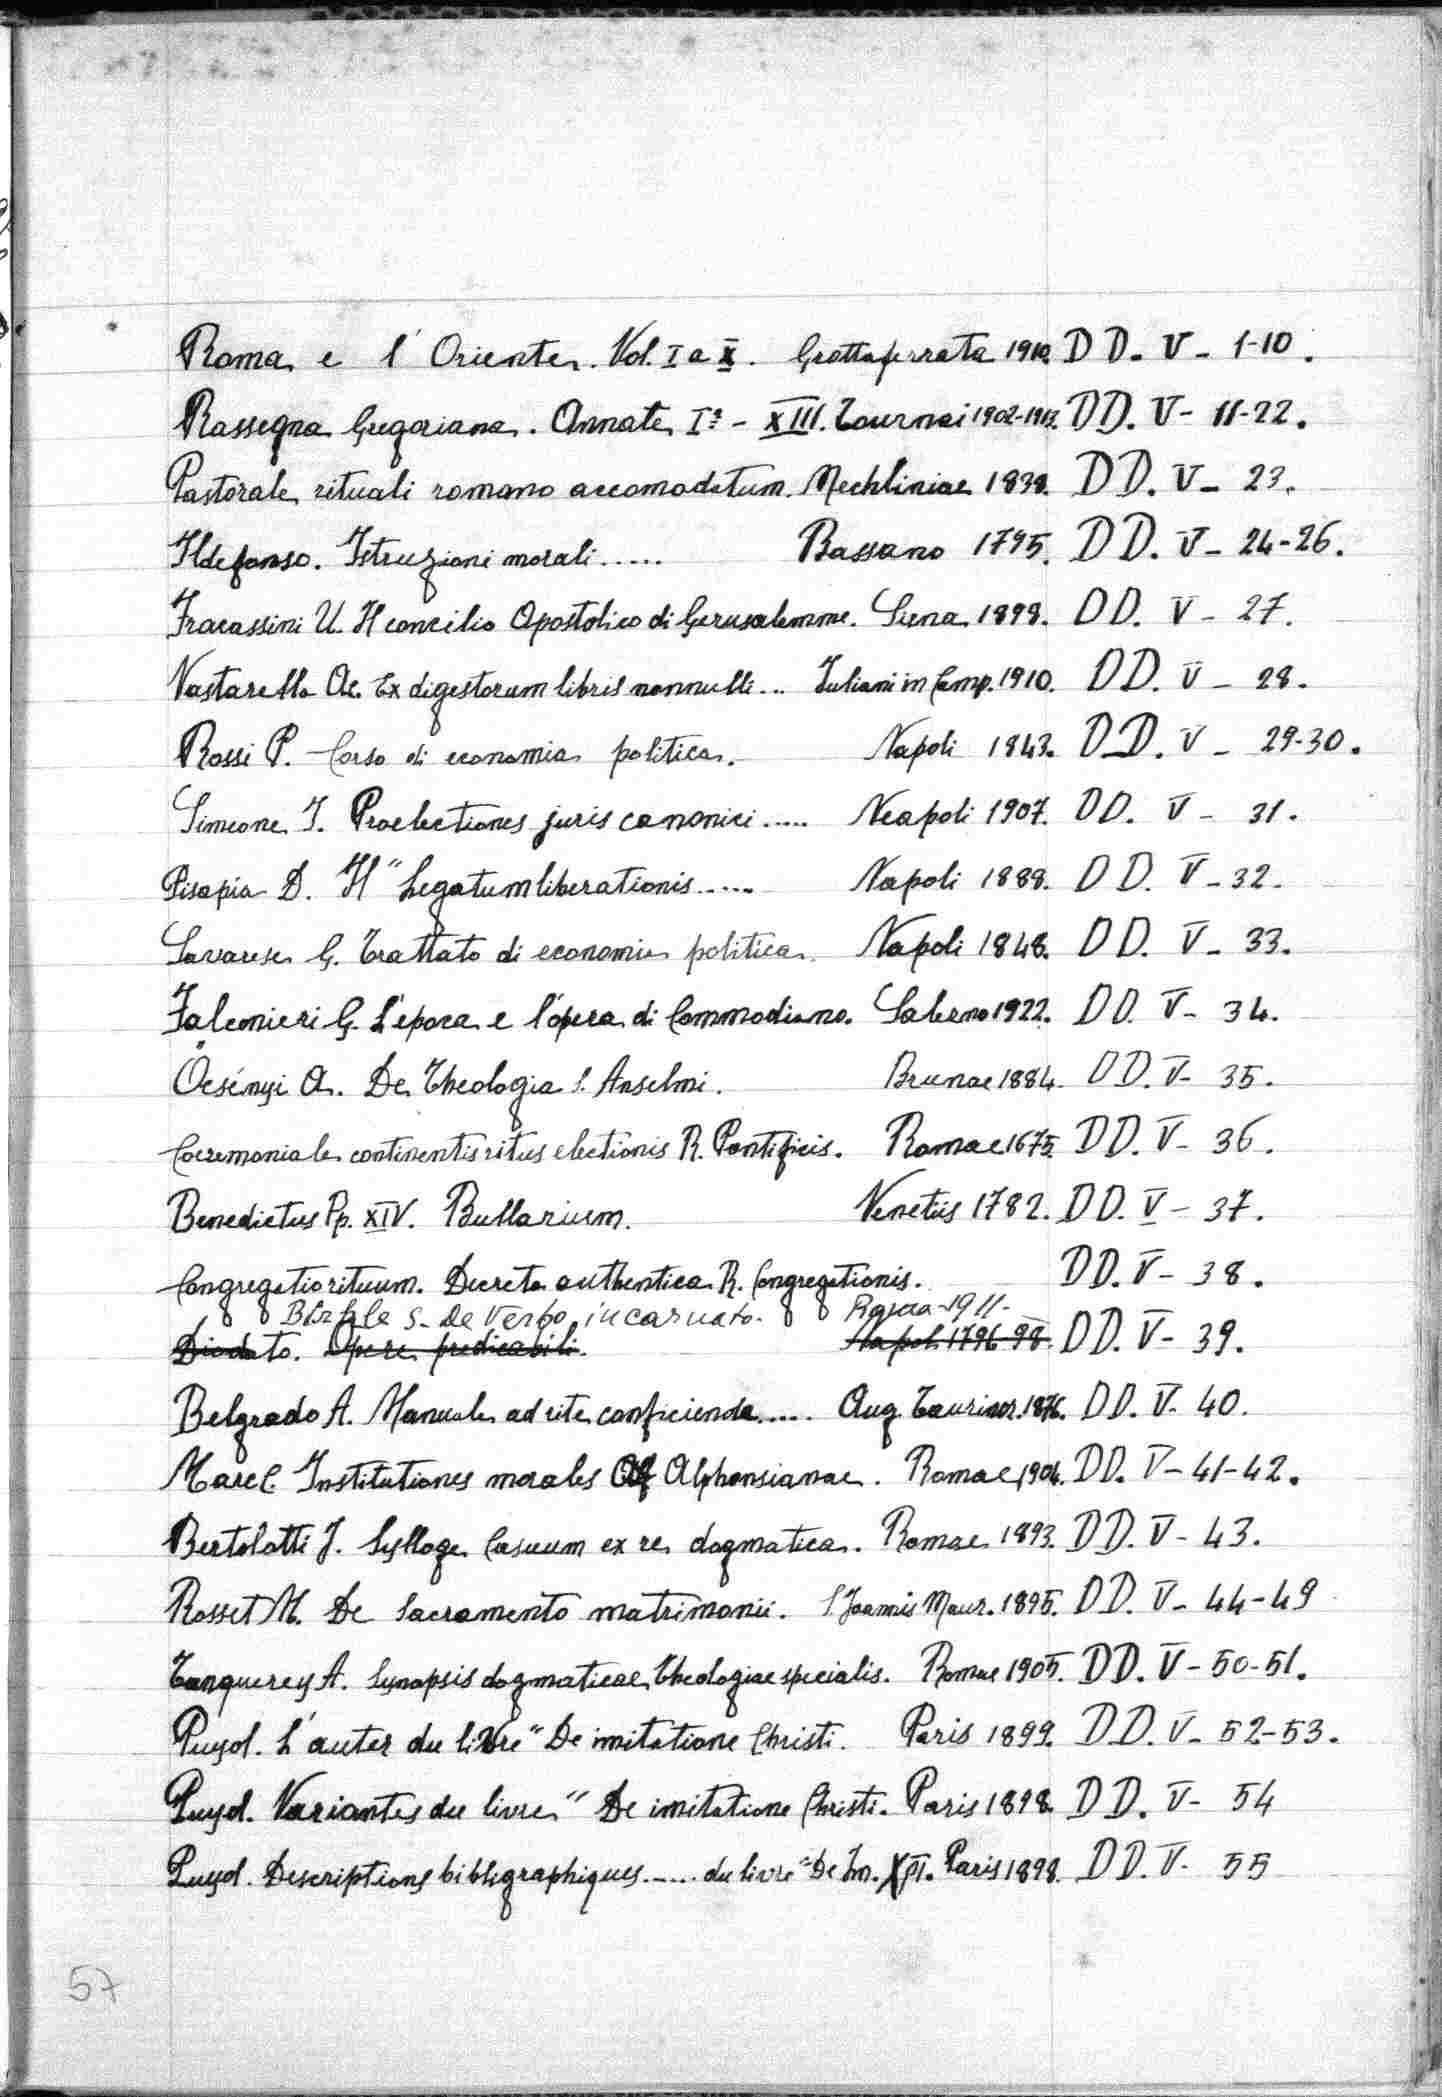 Roma e l'Oriente. Vol. I a X. Grottaferrata 1910. DD. V - 1-10.
Rassegna Gregoriana. Annate Iª - XIII. Tournai 1902-1913. DD. V - 11-22.
Pastorale rituali romano accomodatum. Mechliniae 1838. DD. V - 23.
Ildefonso. Istruzioni morali ..... Bassano 1795. DD. V - 24-26.
Fracassini U. Il concilio Apostolico di Gerusalemme. Siena 1898. DD. V - 27.
Vastarella Ae. Ex digestorum libris nonnulli... Iuliani in Camp. 1910. DD. V - 28.
Rossi P. Corso di economia politica. Napoli 1843. DD. V - 29-30.
Simeone I. Praelectiones juris canonici ..... Neapoli 1907. DD. V - 31.
Pisapia D. Il "Legatum liberationis ..... Napoli 1888. DD. V - 32.
Savarese G. Trattato di economia politica. Napoli 1848. DD. V - 33.
Falconieri G. L'epoca e l'opera di Commodiano. Salerno 1922. DD. V - 34.
Öcsényi A. De Theologia S. Anselmi. Brunae 1884. DD. V - 35.
Caeremoniale continentis ritus electionis R. Pontificis. Romae 1675. DD. V - 36.
Benedictus Pp. XIV. Bullarium. Venetiis 1782. DD. V - 37.
Congregatio rituum. Decreta authentica R. Congregationis. DD. V - 38.
S. De Verbo incarnato. 1911.
Diodato. Opere predicabili. Napoli 1796-98. DD. V - 39.
Belgrado A. Manuale ad rite conficienda ..... Aug. Taurinor. 1876. DD. V. 40.
Marc C. Institutiones morales Alphonsianae. Romae 1904. DD. V - 41-42.
Bertolotti J. Sylloge Casuum ex re dogmatica. Romae 1893. DD. V - 43.
Rosset M. De Sacramento matrimonii. S. Joannis Maur. 1895. DD. V - 44-49
Tanquerey A. Synopsis dogmaticae Theologiae specialis. Romae 1905. DD. V - 50-51.
Puyol. L'auter du livre "De imitatione Christi. Paris 1899. DD. V - 52-53.
Puyol. Variantes du livre " De imitatione Christi. Paris 1898. DD. V - 54
Puyol. Descriptions bibligraphiques ..... du livre "De Im. XPI. Paris 1898. DD. V - 55
57